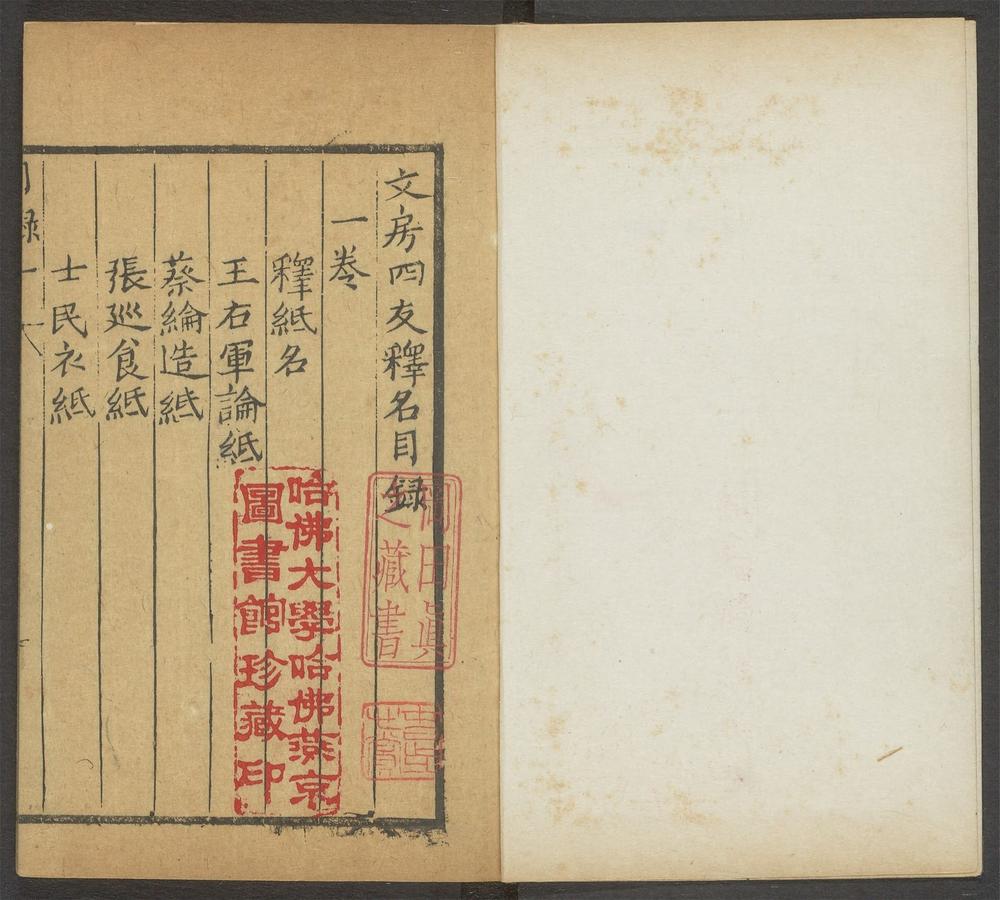 文房四友釋名目録
一卷
釋紙名
王右軍論紙
蔡綸造紙
張廵食紙
士民衣紙
目録一
哈佛大學哈佛燕京
圖書館珍藏印
岡田眞
之藏書